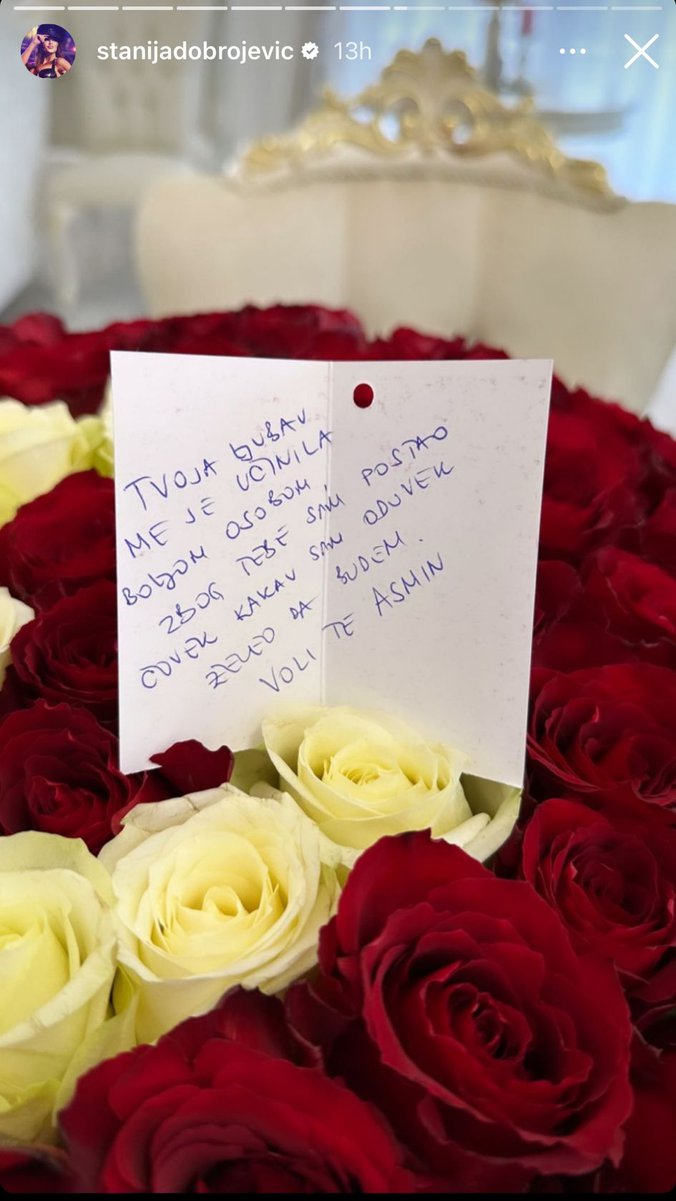 stanijadobrojevic 13h
TVOJA LJUBAV
ME JE UČINILA
BOLJOM OSOBOM,
ZBOG TEBE SAM POSTAO
ČOVEK KAKAV SAM ODUVEK
ŽELEO DA BUDEM.
VOLI TE ASMIN